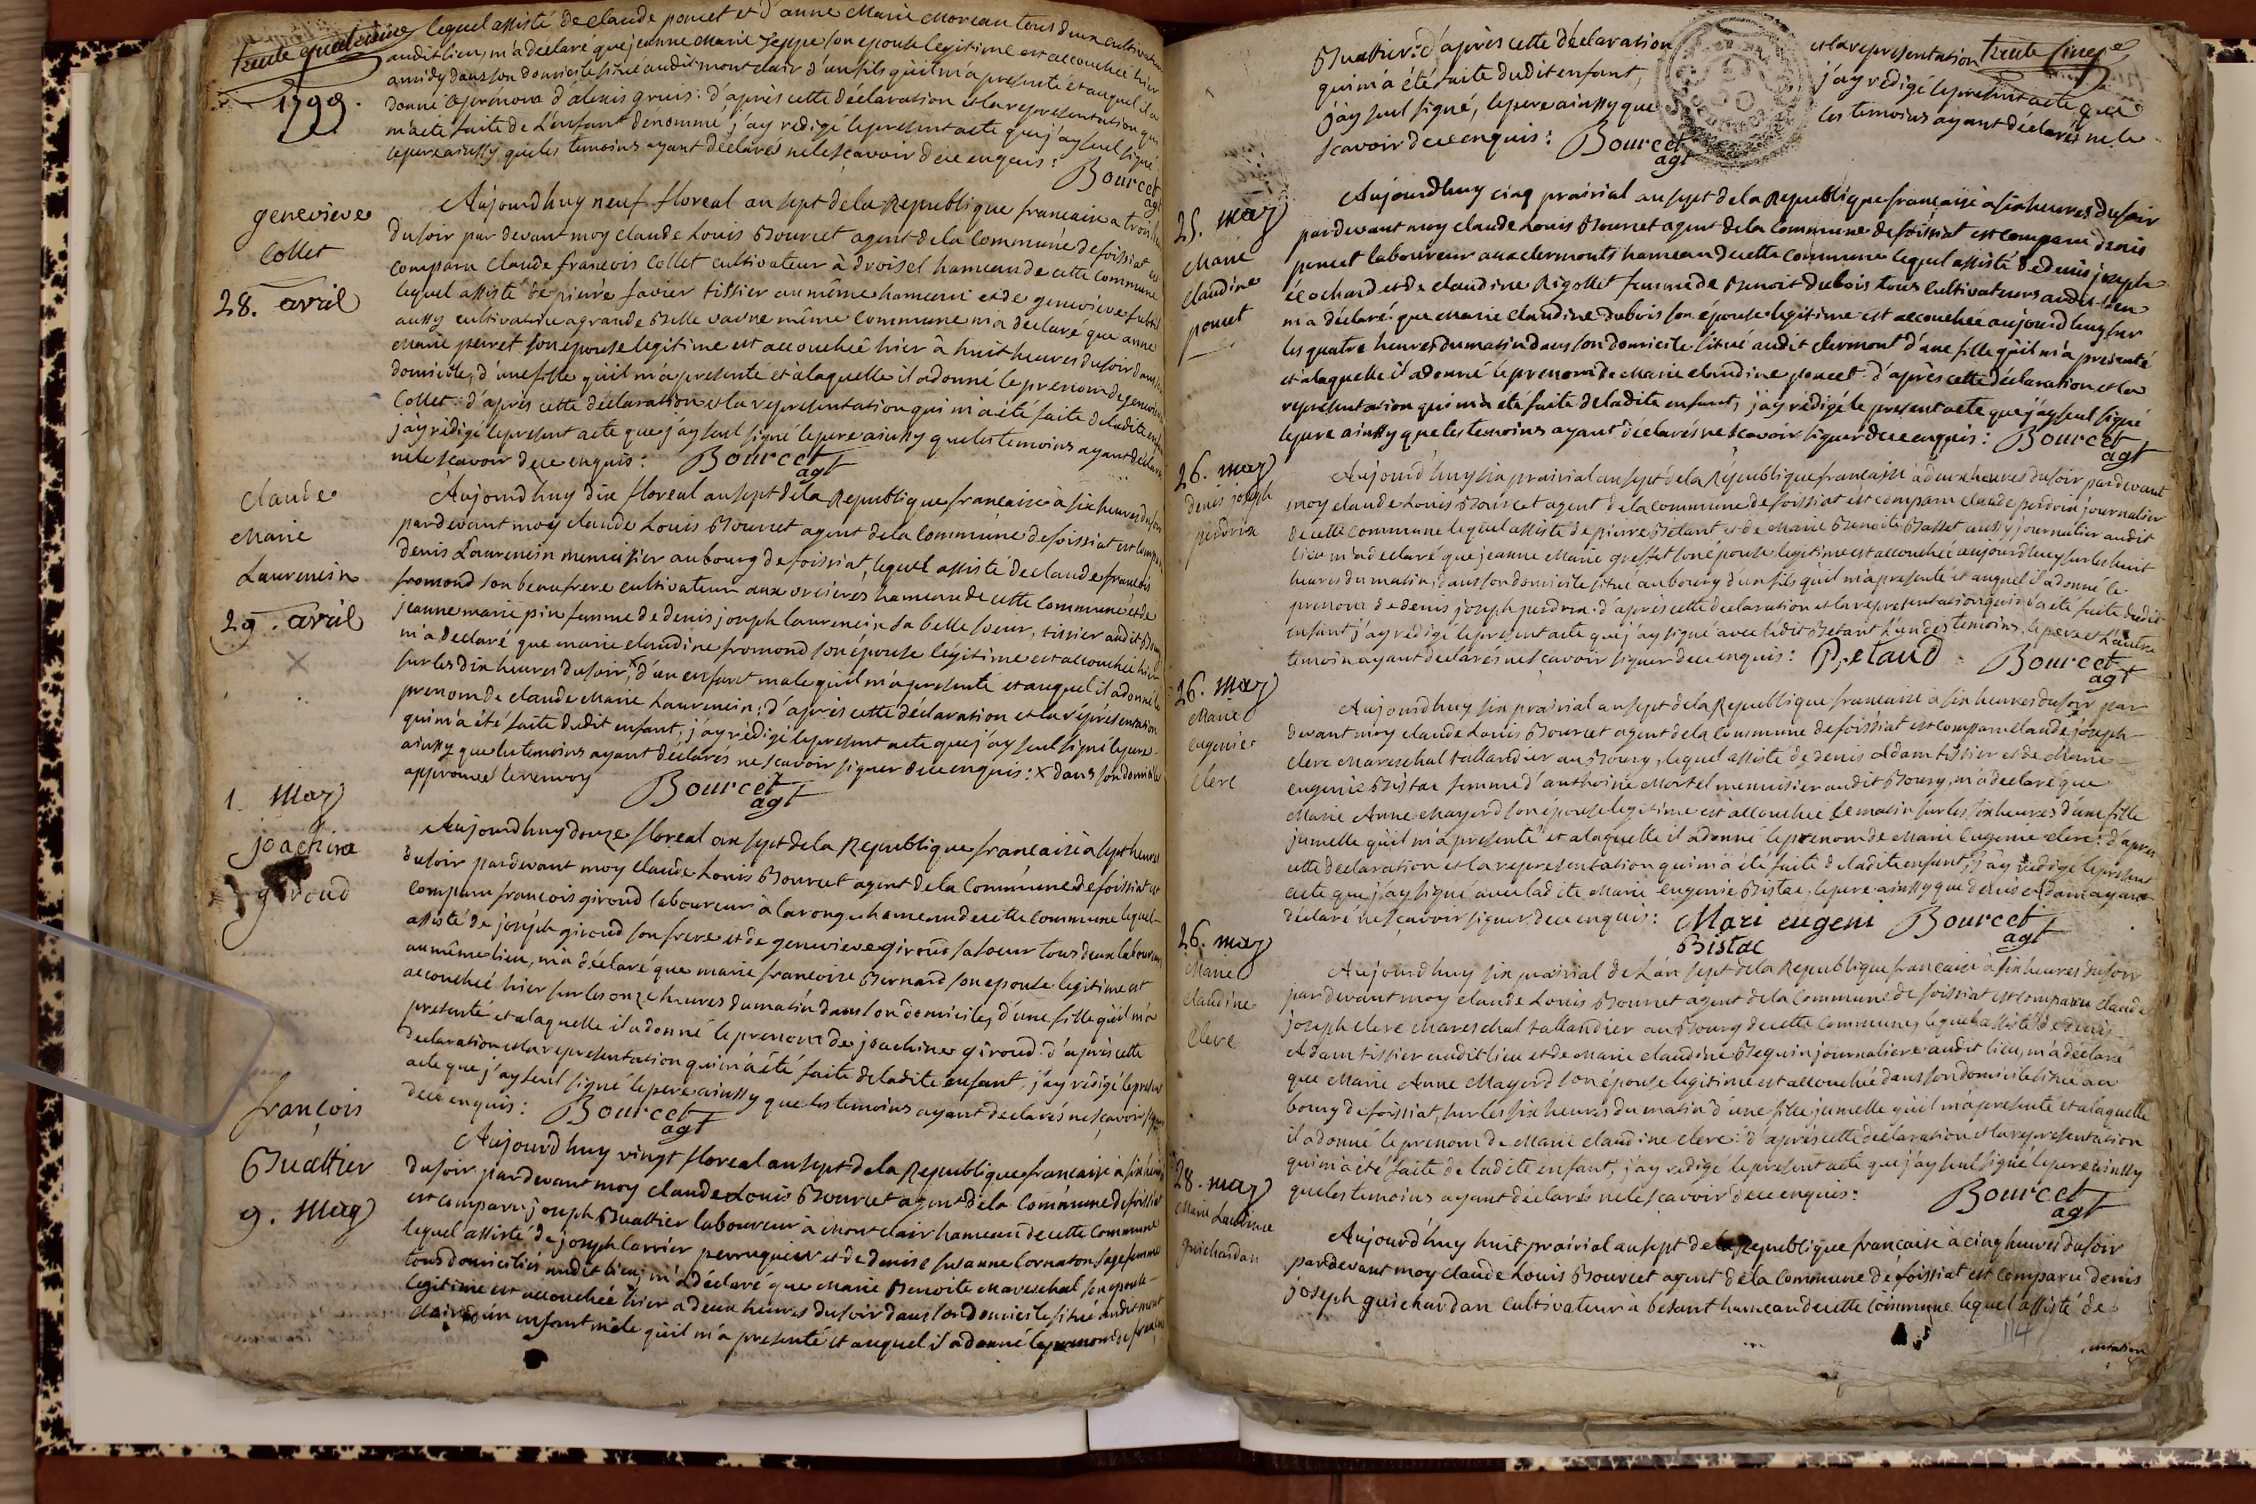 trente quatrieme
1799.
lequel assisté de claude poncet et d'anne Marie Moreau tous deux cultivateurs
audit lieu, m'a déclaré que jeanne Marie son epouse legitime est accouchée hier
a midy dans son domicile situé audit mont clair d'un fils qu'il m'a presenté et auquel il a
donné le prénom d'alexis gruis: d'après cette déclaration et la representation qui
m'a eté faite de L'enfant denommé j'ay redigé le present acte que j'ay seul signé
le pere ainssy que les temoins ayant déclarés ne le scavoir de ce enquis: Bourcet
agt
genevieve
Collet
28. avril
Aujourdhuy neuf floreal an sept de la Republique francaise a trois
du soir par devant moy claude Louis Bourcet agent de la Commune de foissiat est
comparu Claude francois Collet cultivateur à droisel hameau de cette commune
lequel assisté de pierre favier tissier au même hameau et de genevieve
aussy cultivatrice a grande Belle vavre même commune m'a déclaré que anne
Marie perret son épouse legitime est accouchée hier à huit heures du soir dans
domicile, d'une fille qu'il m'a presenté et a laquelle il a donné le prenom de genevieve
Collet: d'après cette déclaration et la representation qui m'a été faite de ladite
j'ay redigé le present acte que j'ay seul signé le pere ainssy que les temoins ayant déclaré
ne le scavoir de ce enquis: Bourcet
agt
Claude
Marie
Laurencin
29. avril
Aujourdhuy dix floreal an sept de la Republique francaise à six heures du soir
par devant moy claude Louis Bourcet agent de la Commune de foissiat est comparu
denis Laurencin menuisier au bourg de foissiat, lequel assisté de claude francois
fromond son beaufrere cultivateur aux orcieres hameau de cette commune et de
jeanne marie pin femme de denis joseph laurencin sa belle soeur, tissier audit Bourg
m'a declaré que marie claudine fromond son épouse legitime est accouchée hier
sur les dix heures du soir, x d'un enfant male qu'il m'a presenté et auquel il a donné le
prenom de claude Marie Laurencin; d'après cette déclaration et la représentation
qui m'a été faite dudit enfant, j'ay rédigé le present acte que j'ay seul signé le pere
ainssy que les temoins ayant déclarés ne scavoir signer de ce enquis: x dans son domicile
approuvé le renvoy Bourcet
agt
1. May
joachine
giroud
Aujourdhuy douze floreal an sept de la Republique francaise à sept heures
du soir par devant moy claude Louis Bourcet agent de la Commune de foissiat est
comparu francois giroud laboureur à la rongu hameau de cette commune lequel
assisté de joseph giroud son frere et de genevieve giroud sa soeur tous deux laboureurs
au même lieu, m'a déclaré que marie francoise Bernard son epouse legitime est
accouchée hier sur les onze heures du matin dans son domicile, d'une fille qu'il m'a
presenté et a laquelle il a donné le prenom de joachine giroud: d'après cette
declaration et la representation qui m'a été faite de ladite enfant, j'ay rédigé le present
acte que j'ay seul signé le pere ainssy que les temoins ayant declarés ne scavoir signer
de ce enquis: Bourcet
agt
françois
Buattier
9. May
Aujourdhuy vingt floreal an sept de la Republique francaise à six heures
du soir par devant moy claude Louis Bourcet agent de la Commune de foissiat
est comparu joseph Buattier laboureur à Mont clair hameau de cette commune
lequel assisté de joseph larrivier perruquier et de denise susanne Cornaton sage femme
tous domiciliés audit lieu, m'a déclaré que Marie Benoite Mareschal son epouse
legitime est accouchée hier a deux heures du soir dans son domicile situé audit mont
clair d'un enfant mâle qu'il m'a presenté et auquel il a donné le prenom de françois
trente cinqe
Buattier: d'après cette déclaration et la representation
qui m'a été faite dudit enfant, j'ay redigé le present acte que
j'ay seul signé, le pere ainssy que les temoins ayant déclarés ne le
scavoir de ce enquis: Bourcet
agt
25. May
Marie
Claudine
poncet
Aujourdhuy cinq prairial an sept de la Republique française à six heures du soir
par devant moy claude Louis Bourcet agent de la Commune de foissiat est comparu denis
poncet laboureur aux clermonts hameau de cette commune lequel assisté de denis joseph
écochard et de claudine Rigollet femme de Benoit dubois tous cultivateurs audit lieu
m'a déclaré que Marie claudine dubois son épouse legitime est accouchée aujourdhuy sur
les quatre heures du matin dans son domicile situé audit clermont d'une fille qu'il m'a presenté
et a laquelle il a donné le prenom de Marie claudine poncet: d'après cette déclaration et la
representation qui m'a eté faite de ladite enfant, j'ay rédigé le present acte que j'ay seul signé
le pere ainssy que les temoins ayant declarés ne scavoir signer de ce enquis: Bourcet
agt
26. may
denis joseph
perdrix
Aujourd'huy six prairial an sept de la République francaise à deux heures du soir par devant
moy claude Louis Bourcet agent de la commune de foissiat est comparu claude perdrix journalier
de cette commune lequel assisté de pierre Betant et de Marie Benoite Basset aussy journalier audit
lieu m'a declaré que jeanne Marie greffet son épouse legitime est accouchée aujourdhuy sur les huit
heures du matin, dans son domicile situé au bourg d'un fils qu'il m'a presenté et auquel il a donné le
prenom de denis joseph perdrix: d'après cette declaration et la representation qui m'a eté faite dudit
enfant j'ay redigé le present acte que j'ay signé avec ledit Betant L'un des temoins, le pere et L'autre
temoin ayant declarés ne scavoir signer de ce enquis: Betand Bourcet
agt
26. May
Marie
eugenie
Clerc
Aujourdhuy six prairial an sept de la Republique francaise à six heures du soir par
devant moy claude Louis Bourcet agent de la Commune de foissiat est comparu claude joseph
clerc Mareschal tallandier au Bourg, lequel assisté de denis Adam tissier et de Marie
eugenie Bistac femme d'anthoine Mortel menuisier audit Bourg, m'a declaré que
Marie Anne Mayerd son épouse legitime est accouchée ce matin sur les six heures d'une fille
jumelle qu'il m'a presenté et a laquelle il a donné le prenom de Marie Eugenie clerc: d'apres
cette declaration et la representation qui m'a été faite de ladite enfant, j'ay redigé le present
acte que j'ay signé avec ladite Marie eugenie Bistac, le pere ainssy que denis Adam ayant
déclaré ne scavoir signer de ce enquis: Mari eugeni Bourcet
Bistac agt
26. may
Marie
Claudine
Clerc
Aujourdhuy six prairial de L'an sept de la Republique francaise à six heures du soir
par devant moy claude Louis Bourcet agent de la Commune de foissiat est comparu claude
joseph clerc Mareschal tallandier au Bourg de cette Commune, lequel assisté de denis
Adam tissier audit lieu et de Marie claudine Beguin journaliere audit lieu, m'a déclaré
que Marie Anne Mayerd son épouse legitime est accouchée dans son domicile situé au
bourg de foissiat, sur les six heures du matin d'une fille jumelle qu'il m'a presenté et a laquelle
il a donné le prenom de Marie claudine clerc: d'après cette déclaration et la representation
qui m'a eté faite de ladite enfant, j'ay redigé le present acte que j'ay seul signé le pere ainssy
que les temoins ayant déclarés ne le scavoir de ce enquis: Bourcet
agt
28. may
Marie Laurence
guichardan
Aujourd'huy huit prairial an sept de la Republique francaise à cinq heures du soir
par devant moy claude Louis Bourcet agent de la Commune de foissiat est comparu denis
joseph guichardan cultivateur à besant hameau de cette commune lequel assisté de
114